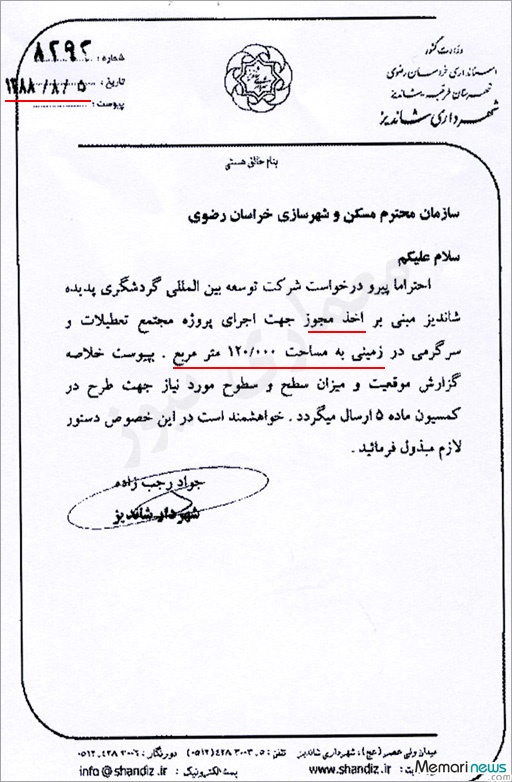 وزارت کشور
استانداری خراسان رضوی
شهرستان طرقبه شاندیز
شهرداری شاندیز
شماره : ۸۲۹۲
تاریخ : ۱۳۸۸/۸/۵
پیوست :
بنام خالق هستی
سازمان محترم مسکن و شهرسازی خراسان رضوی
سلام علیکم
احتراما پیرو درخواست شرکت توسعه بین المللی گردشگری پدیده
شاندیز مبنی بر اخذ مجوز جهت اجرای پروژه مجتمع تعطیلات و
سرگرمی در زمینی به مساحت ۱۲۰/۰۰۰ متر مربع . بپیوست خلاصه
گزارش موقعیت و میزان سطح و سطوح مورد نیاز جهت طرح در
کمسیون ماده ۵ ارسال میگردد . خواهشمند است در این خصوص دستور
لازم مبذول فرمائید .
جواد رجب زاده
شهردار شاندیز
میدان ولی عصر (عج)، شهرداری شاندیز تلفن : ۵ـ۴۲۸۳۰۰۳ (۰۵۱۲) دورنگار : ۴۲۸۳۰۰۲ـ۰۵۱۲
www.shandiz.ir پست الکترونیک : info@shandiz.ir
Memarinews.com
معماری نیوز